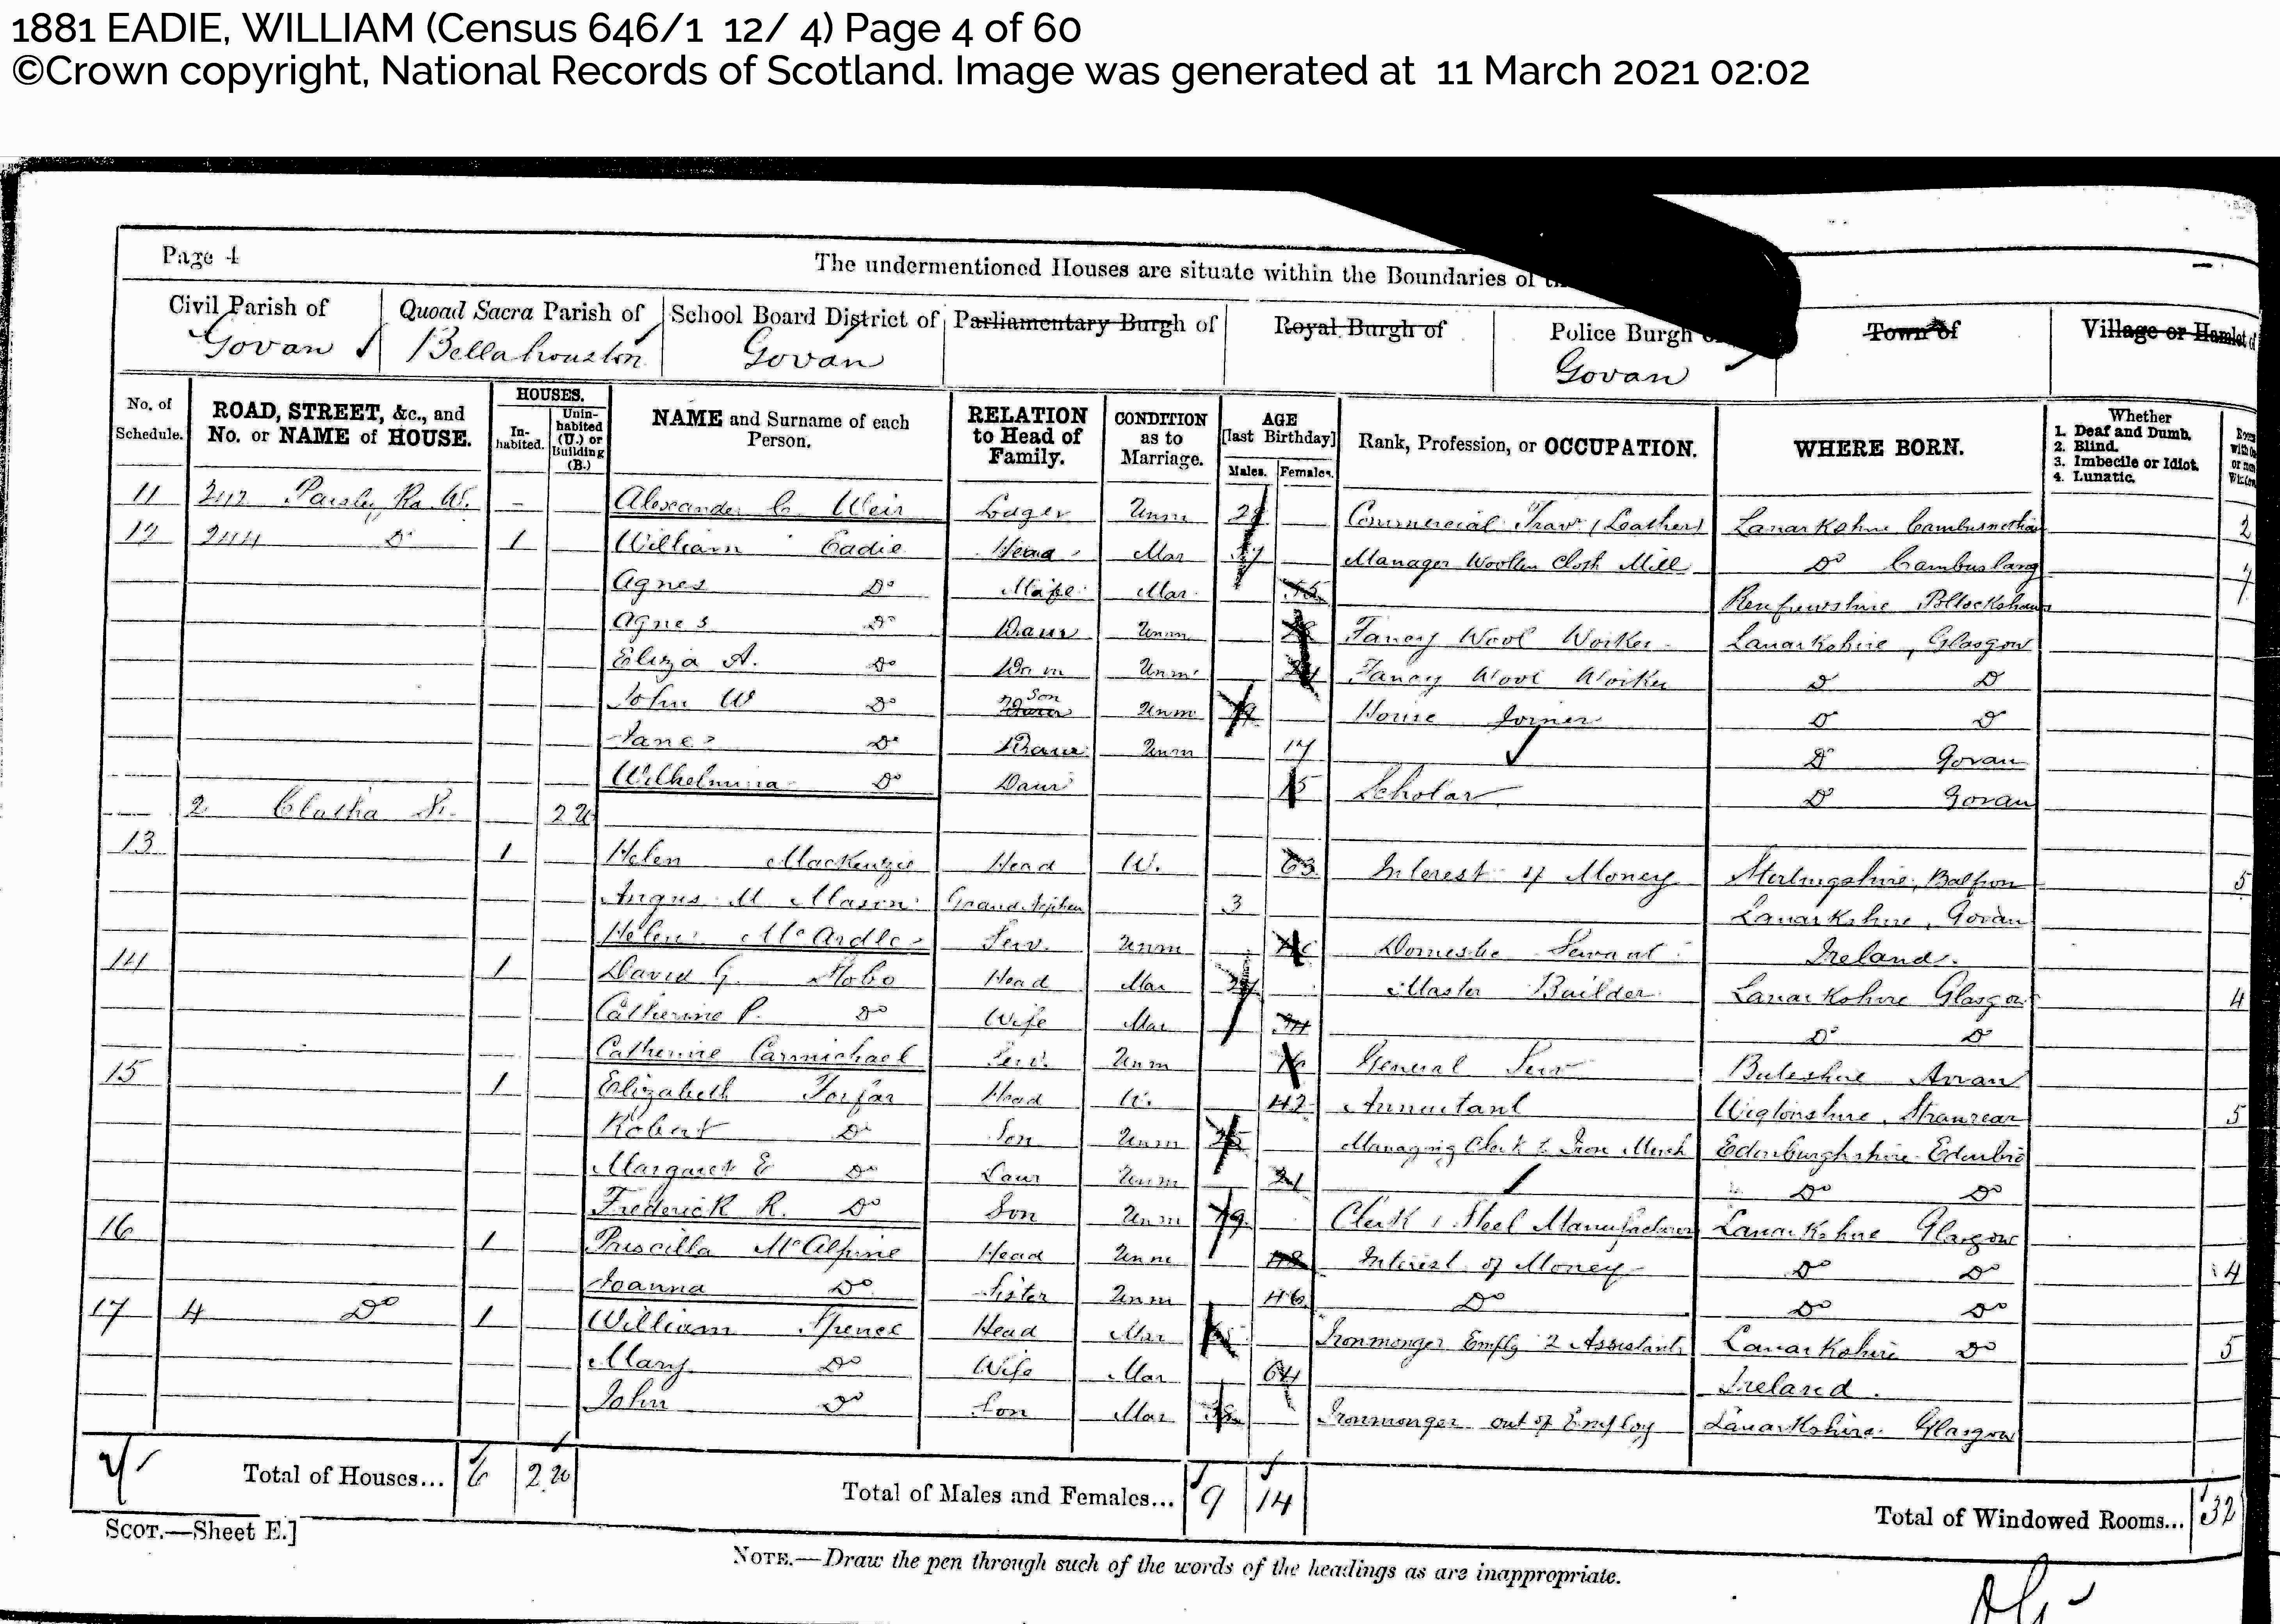 1881 EADIE, WILLIAM (Census 646/1 12/ 4) Page 4 of 60
©Crown copyright, National Records of Scotland. Image was generated at 11 March 2021 02:02
Page 4
The undermentioned Houses are situate within the Boundaries of
Civil Parish of Quoad Sacra Parish of School Board District of Parliamentary Burgh of Royal Burgh of Police Burgh Town of Village or Hamlet of
Govan Bellahouston Govan Govan
No. of Schedule. ROAD, STREET, &c., and No. or NAME of HOUSE. HOUSES. In-habited. Unin-habited (U.) or Building (B.) NAME and Surname of each Person. RELATION to Head of Family. CONDITION as to Marriage. AGE [last Birthday] Males. Females. Rank, Profession, or OCCUPATION. WHERE BORN. Whether 1. Deaf and Dumb. 2. Blind. 3. Imbecile or Idiot. 4. Lunatic.
11 242 Paisley Rd W. Alexander C. Weir Lodger Unm Commercial Trav. (Leather) Lanarkshire Cambusnethan 2
12 244 Do 1 William Eadie Head Mar Manager Woollen Cloth Mill Do Cambuslang 7
Agnes Do Wife Mar 55 Renfrewshire Pollockshaws
Agnes Do Daur Unm Fancy Wool Worker Lanarkshire, Glasgow
Eliza A. Do Daur Unm Fancy Wool Worker Do Do
John W Do Son Unm 19 House Joiner Do Do
Jane Do Daur Unm 17 Do Govan
Wilhelmina Do Daur 15 Scholar Do Govan
2 Clutha St. 2 U
13 1 Helen MacKenzie Head W. 63 Interest of Money Stirlingshire, Balfron 5
Angus M Mason Grand Nephew 3 Lanarkshire, Govan
Helen McArdle Serv. Unm Domestic Servant Ireland.
14 1 David G. Stobo Head Mar Master Builder Lanarkshire Glasgow 4
Catherine P. Do Wife Mar 34 Do Do
Catherine Carmichael Serv. Unm General Serv Buteshire Arran
15 1 Elizabeth Forfar Head W. 42 Annuitant Wigtonshire, Stranraer 5
Robert Do Son Unm 25 Managing Clerk to Iron Merch Edinburghshire Edinbro
Margaret E Do Daur Unm 21 Do Do
Frederick R. Do Son Unm 19 Clerk, Steel Manufacturer Lanarkshire Glasgow
16 1 Priscilla McAlpine Head Unm 48 Interest of Money Do Do 4
Joanna Do Sister Unm 46 Do Do Do
17 4 Do 1 William Spence Head Mar Ironmonger Emplg 2 Assistants Lanarkshire Do 5
Mary Do Wife Mar 64 Ireland.
John Do Son Mar 38 Ironmonger out of Employ Lanarkshire Glasgow
Total of Houses... 6 2 U Total of Males and Females... 9 14 Total of Windowed Rooms... 32
SCOT.—Sheet E.]
NOTE.—Draw the pen through such of the words of the headings as are inappropriate.